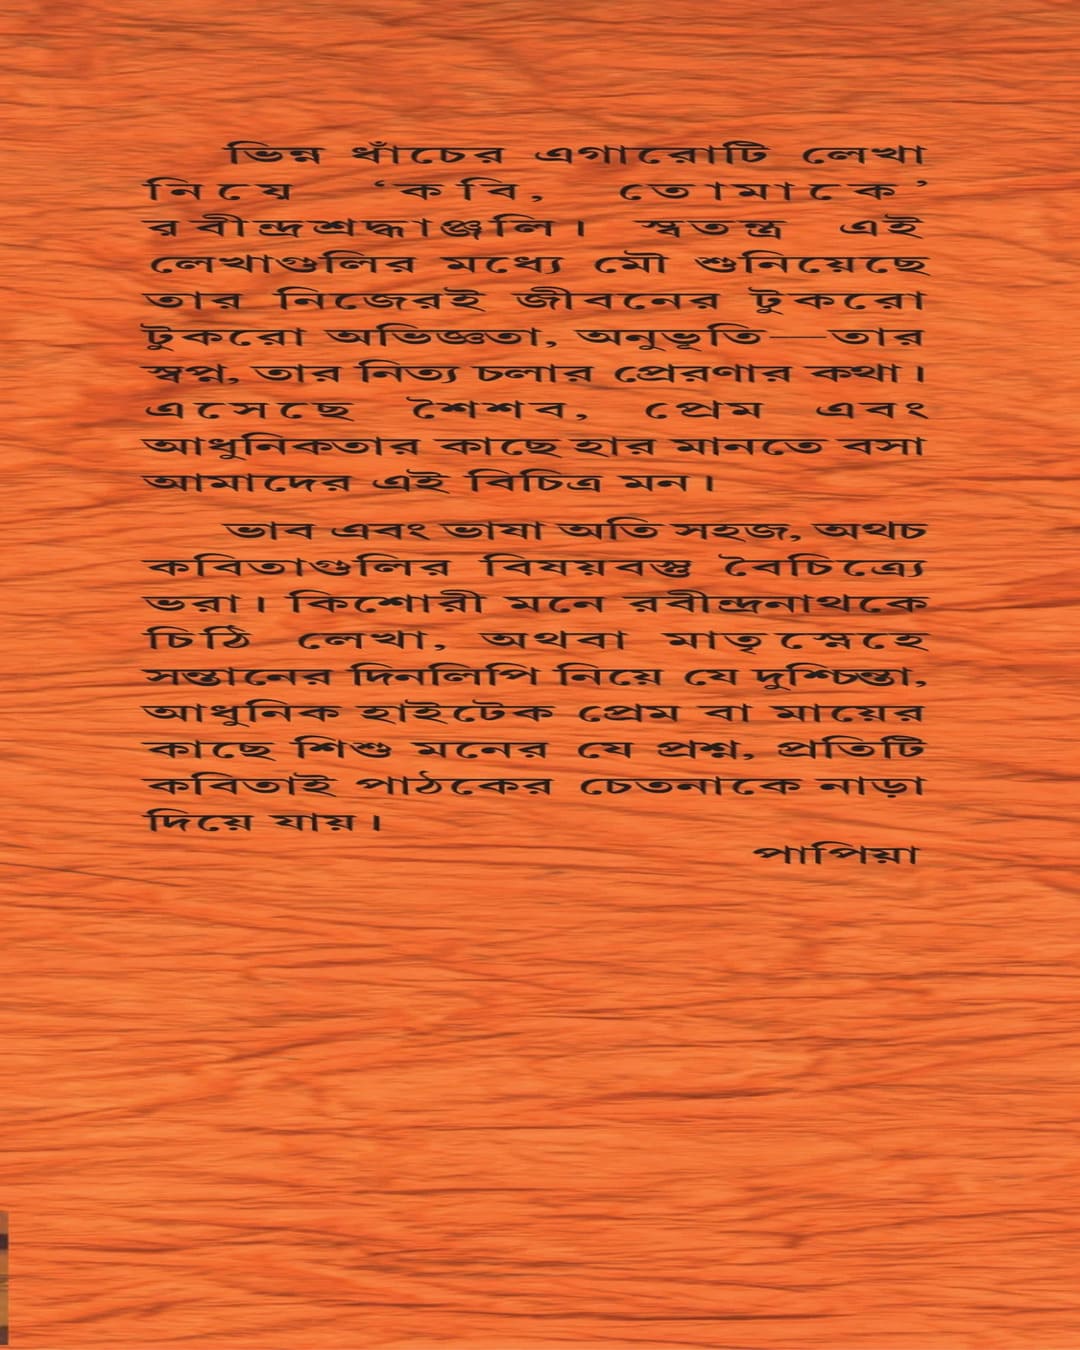 ভিন্ন ধাঁচের এগারোটি লেখা
নিয়ে ‘কবি, তোমাকে’
রবীন্দ্রশ্রদ্ধাঞ্জলি। স্বতন্ত্র এই
লেখাগুলির মধ্যে মৌ শুনিয়েছে
তার নিজেরই জীবনের টুকরো
টুকরো অভিজ্ঞতা, অনুভূতি—তার
স্বপ্ন, তার নিত্য চলার প্রেরণার কথা।
এসেছে শৈশব, প্রেম এবং
আধুনিকতার কাছে হার মানতে বসা
আমাদের এই বিচিত্র মন।
ভাব এবং ভাষা অতি সহজ, অথচ
কবিতাগুলির বিষয়বস্তু বৈচিত্র্যে
ভরা। কিশোরী মনে রবীন্দ্রনাথকে
চিঠি লেখা, অথবা মাতৃস্নেহে
সন্তানের দিনলিপি নিয়ে যে দুশ্চিন্তা,
আধুনিক হাইটেক প্রেম বা মায়ের
কাছে শিশু মনের যে প্রশ্ন, প্রতিটি
কবিতাই পাঠকের চেতনাকে নাড়া
দিয়ে যায়।
পাপিয়া